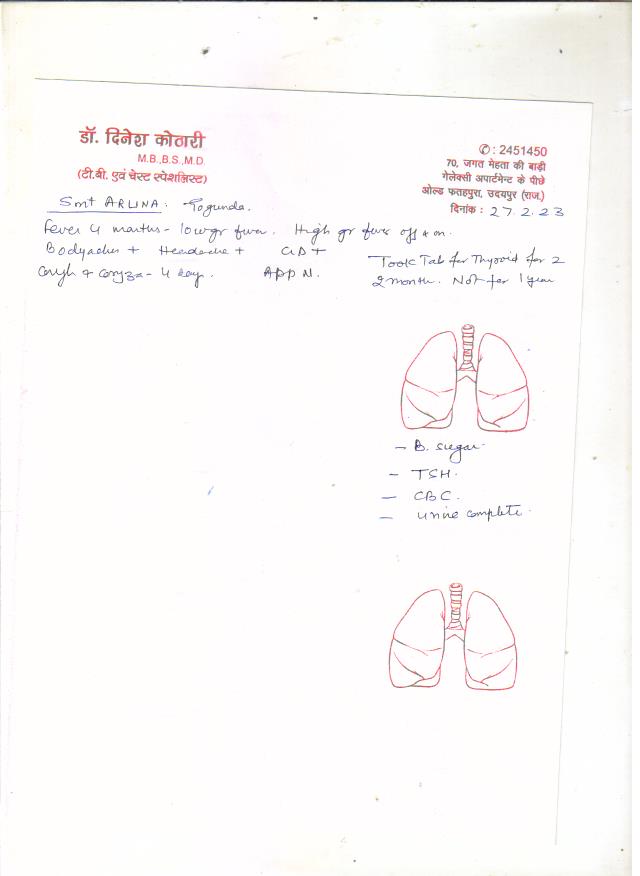 डॉ. दिनेश कोठारी
M.B.,B.S.,M.D.
(टी.बी. एवं चेस्ट स्पेशलिस्ट)
✆ : 2451450
70, जगत मेहता की बाड़ी
गेलेक्सी अपार्टमेन्ट के पीछे
ओल्ड फतहपुरा, उदयपुर (राज.)
दिनांक : 27.2.23
Smt ARUNA: Gogunda.
Fever 4 months - low gr fever. High gr fever off & on.
Bodyaches + Headache +
Cough & Coryza - 4 days. App N.
Took Tab for Thyroid for 2
2 month. Not for 1 year
- B. sugar.
- TSH.
- CBC.
- urine complete.